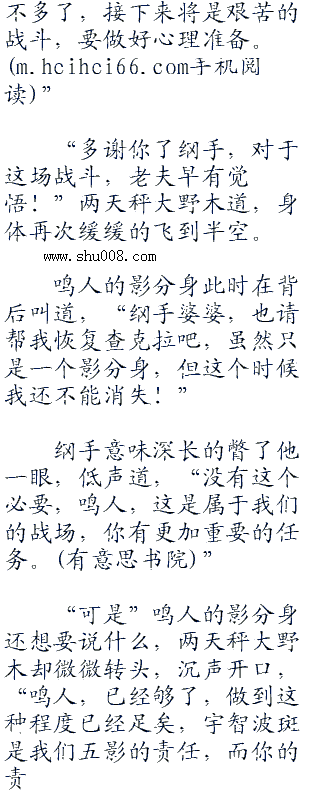 不多了，接下来将是艰苦的
战斗，要做好心理准备。
(m.hcihci66.com手机阅
读)”
“多谢你了纲手，对于
这场战斗，老夫早有觉
悟！”两天秤大野木道，身
体再次缓缓的飞到半空。
www.shu008.com
鸣人的影分身此时在背
后叫道，“纲手婆婆，也请
帮我恢复查克拉吧，虽然只
是一个影分身，但这个时候
我还不能消失！”
纲手意味深长的瞥了他
一眼，低声道，“没有这个
必要，鸣人，这是属于我们
的战场，你有更加重要的任
务。(有意思书院)”
“可是”鸣人的影分身
还想要说什么，两天秤大野
木却微微转头，沉声开口，
“鸣人，已经够了，做到这
种程度已经足矣，宇智波斑
是我们五影的责任，而你的
责